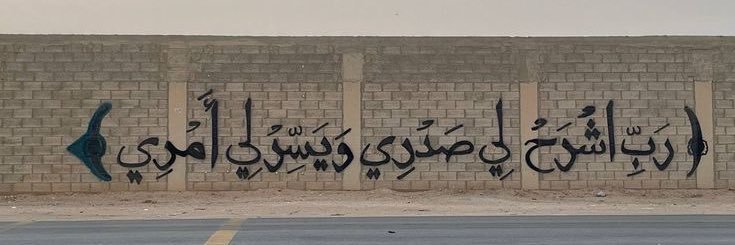 ﴿رَبِّ اشْرَحْ لِي صَدْرِي وَيَسِّرْ لِي أَمْرِي﴾